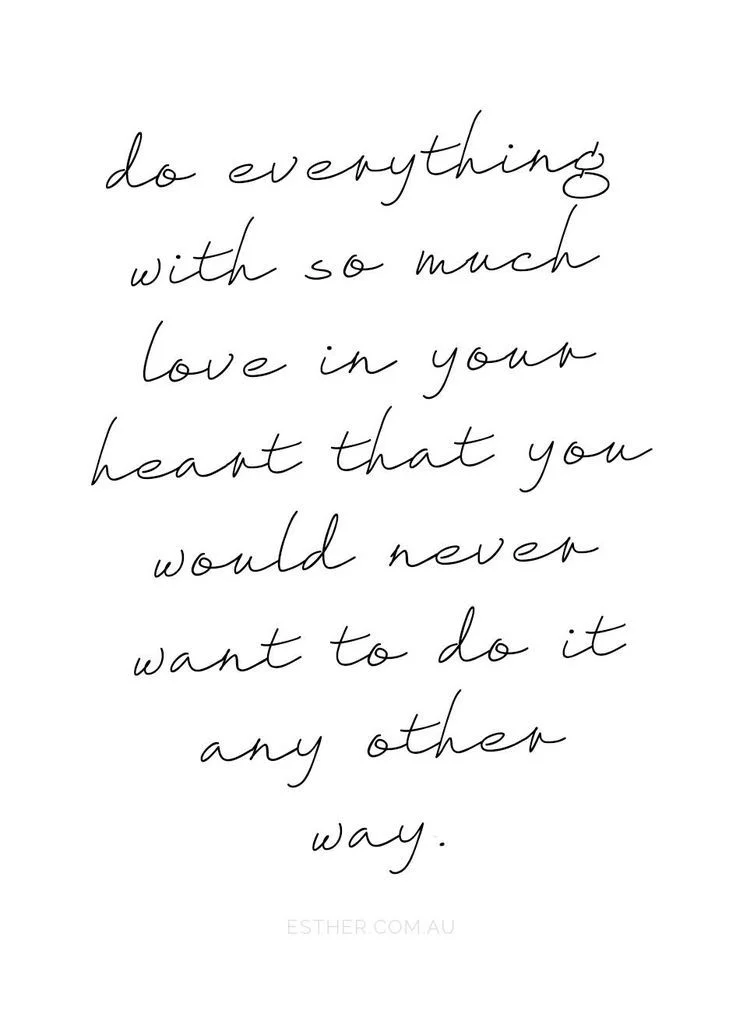 do everything
with so much
love in your
heart that you
would never
want to do it
any other
way.
ESTHER.COM.AU